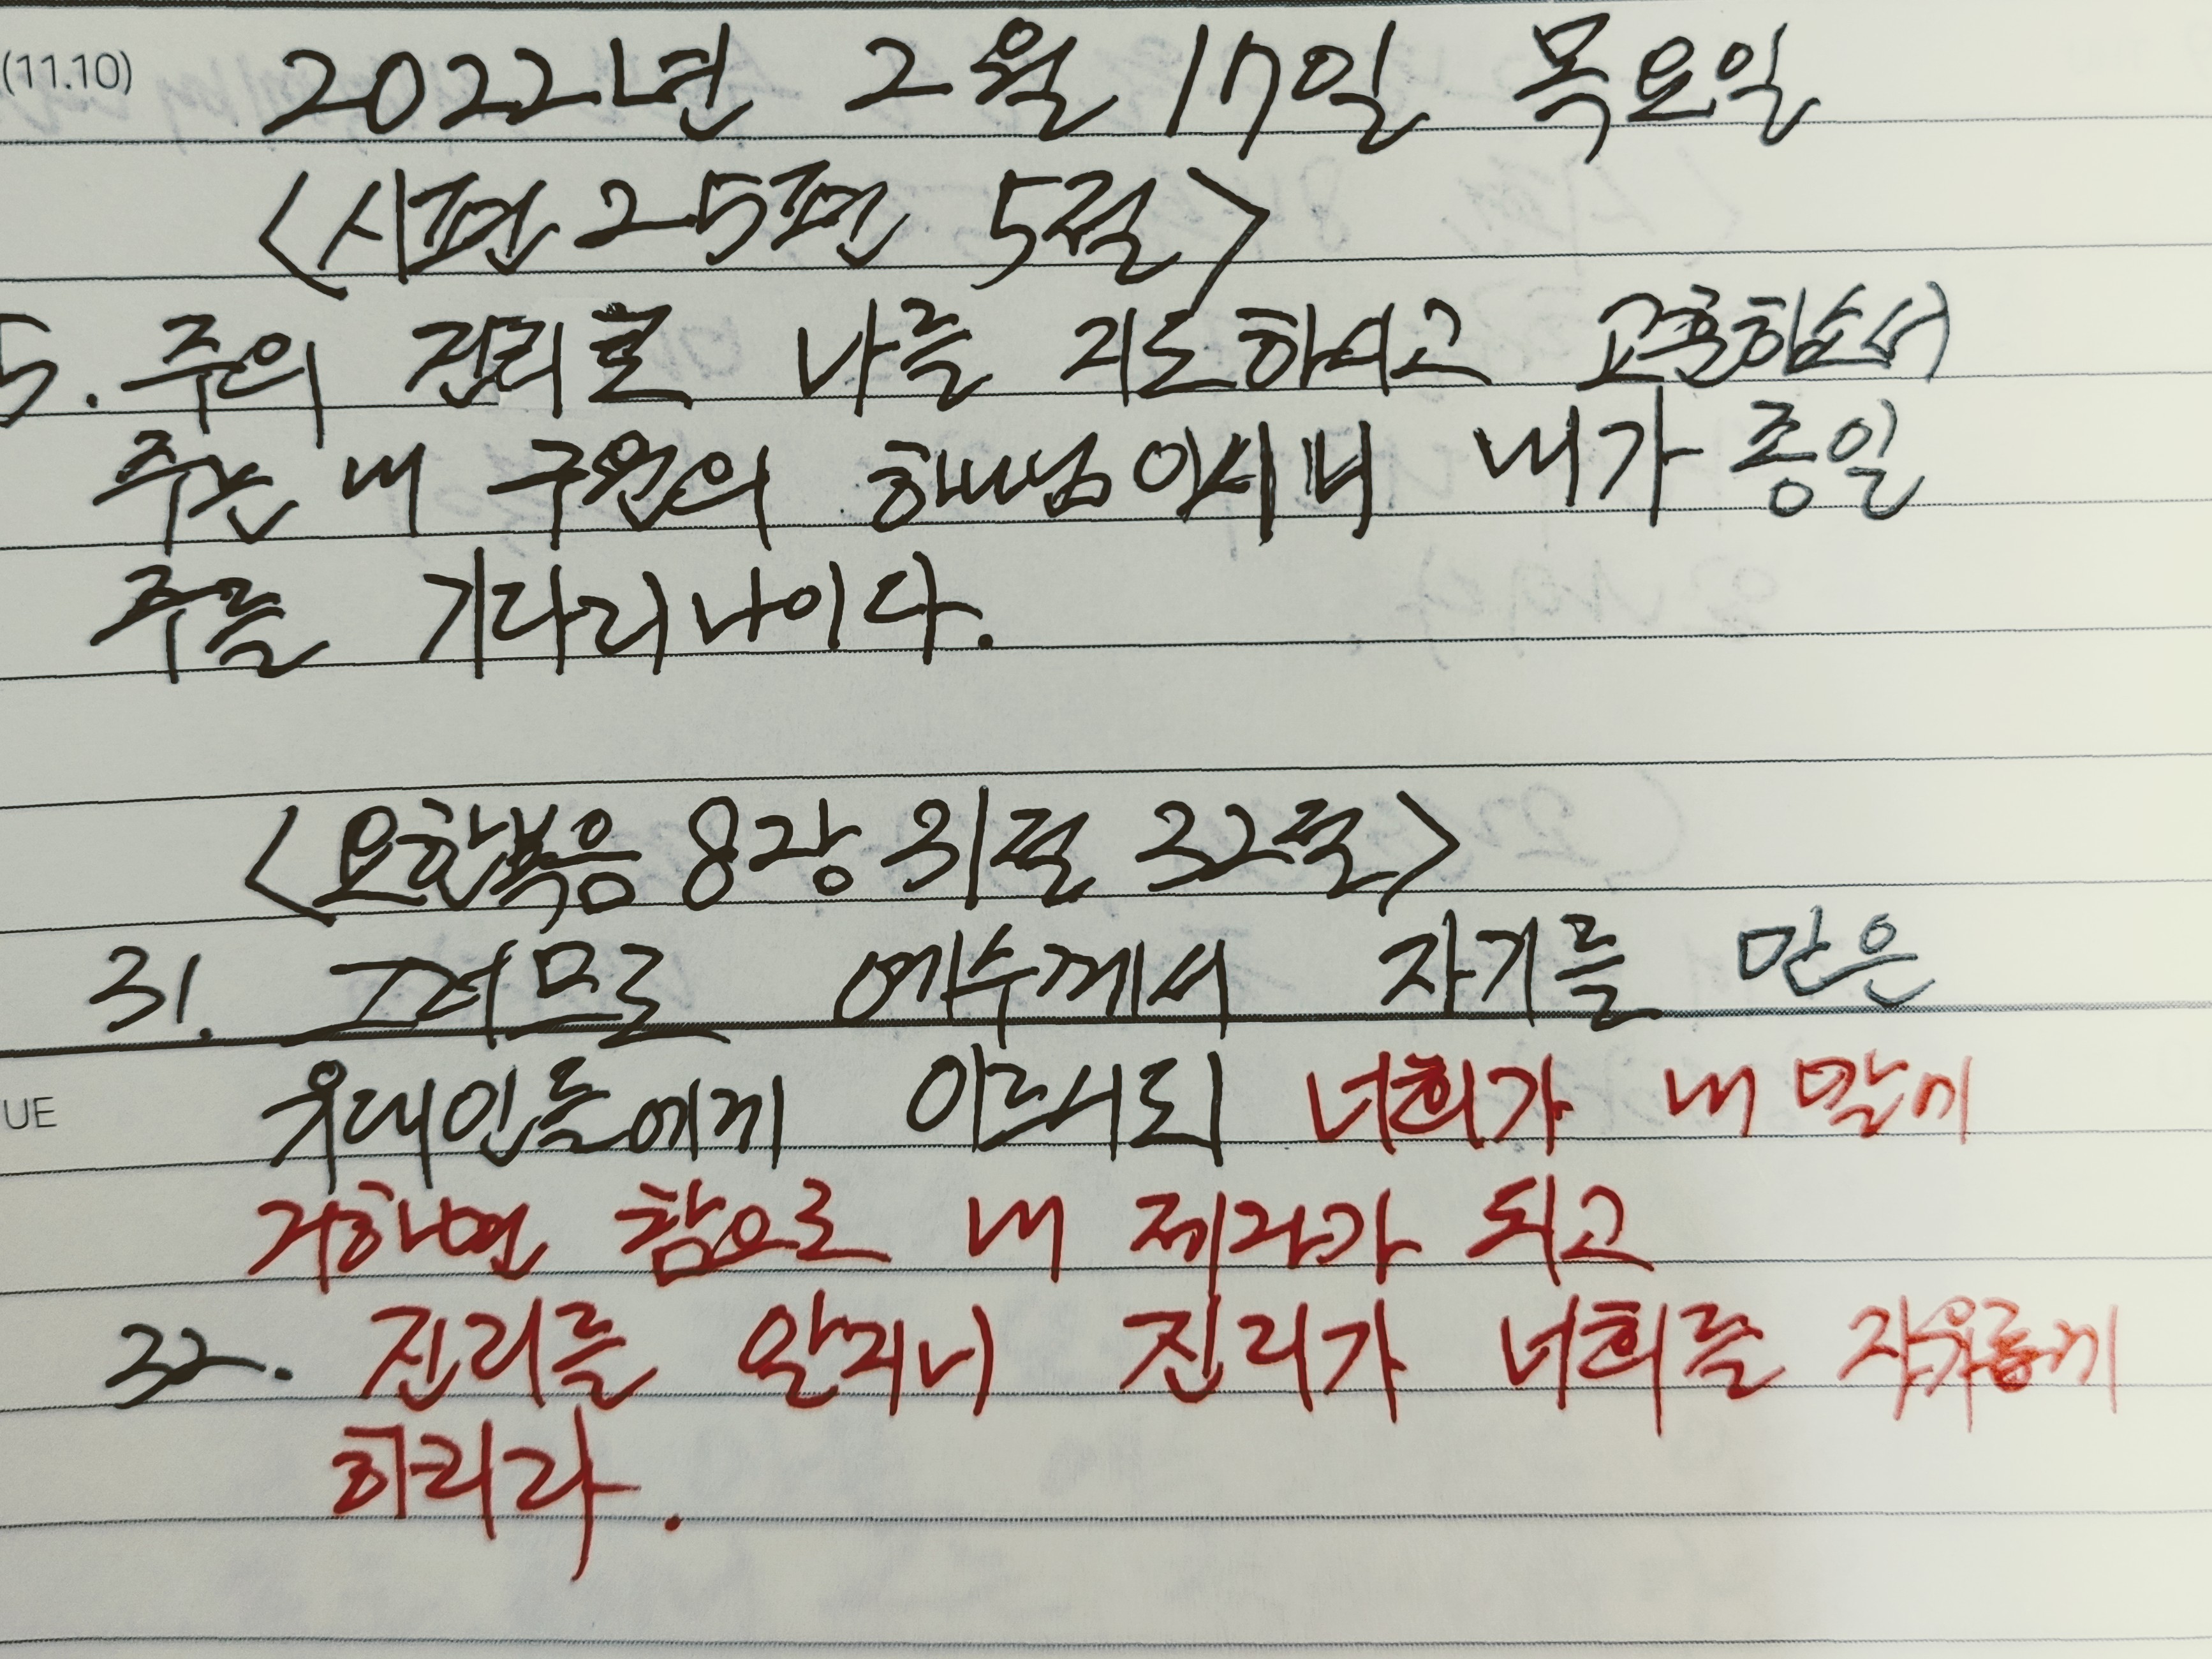 (11.10)
2022년 2월 17일 목요일
<시편 25편 5절>
5. 주의 진리로 나를 지도하시고 교훈하소서
주는 내 구원의 하나님이시니 내가 종일
주를 기다리나이다.
<요한복음 8장 31절 32절>
31. 그러므로 예수께서 자기를 믿은
UE
유대인들에게 이르시되 너희가 내 말에
거하면 참으로 내 제자가 되고
32. 진리를 알지니 진리가 너희를 자유롭게
하리라.